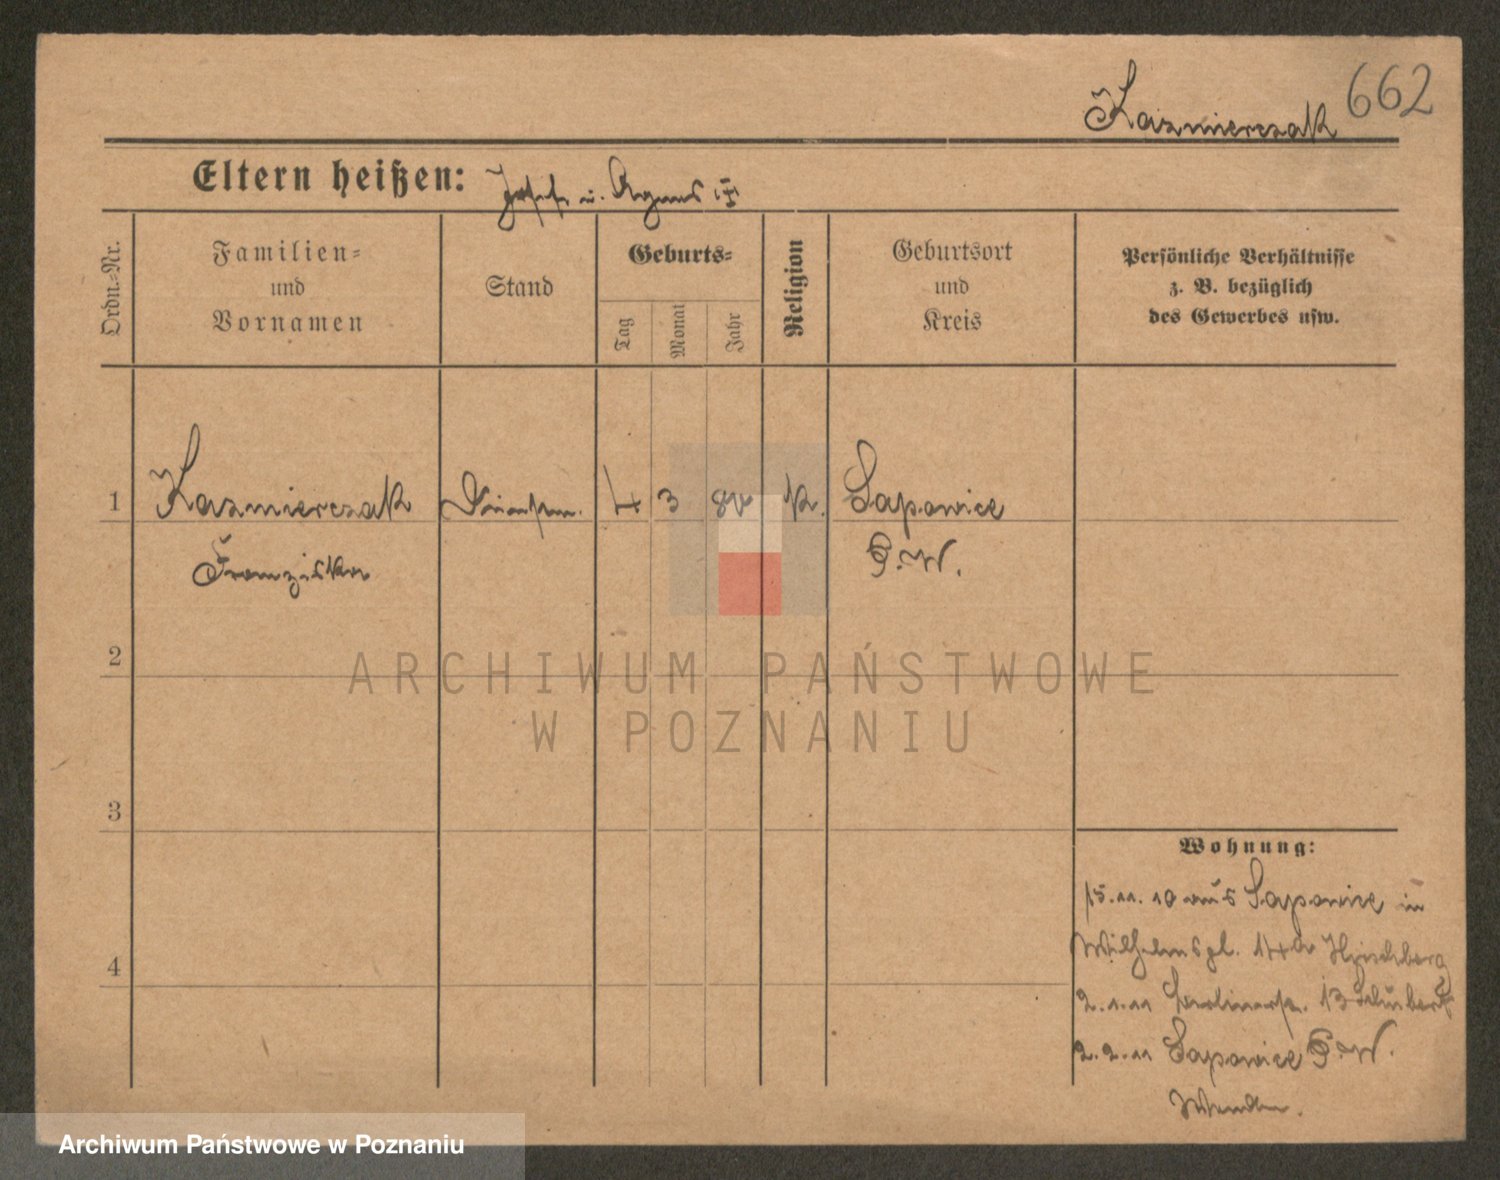 Kazmierczak 662
Eltern heißen: Josef u. Agnes
Ordn.-Nr.
Familien-
und
Vornamen
Stand
Geburts-
Tag
Monat
Jahr
Religion
Geburtsort
und
Kreis
Persönliche Verhältnisse
z. B. bezüglich
des Gewerbes usw.
1 Kazmierczak 4 3 k. Sapowice
Franziska P.W.
2
3
4
Wohnung:
15.11.10 aus Sapowice in
Wilhelmspl. 14a Hirschberg
2.1.11 Berlinerstr. 13 Schubert
2.2.11 Sapowice P.W.
ARCHIWUM PAŃSTWOWE
W POZNANIU
Archiwum Państwowe w Poznaniu